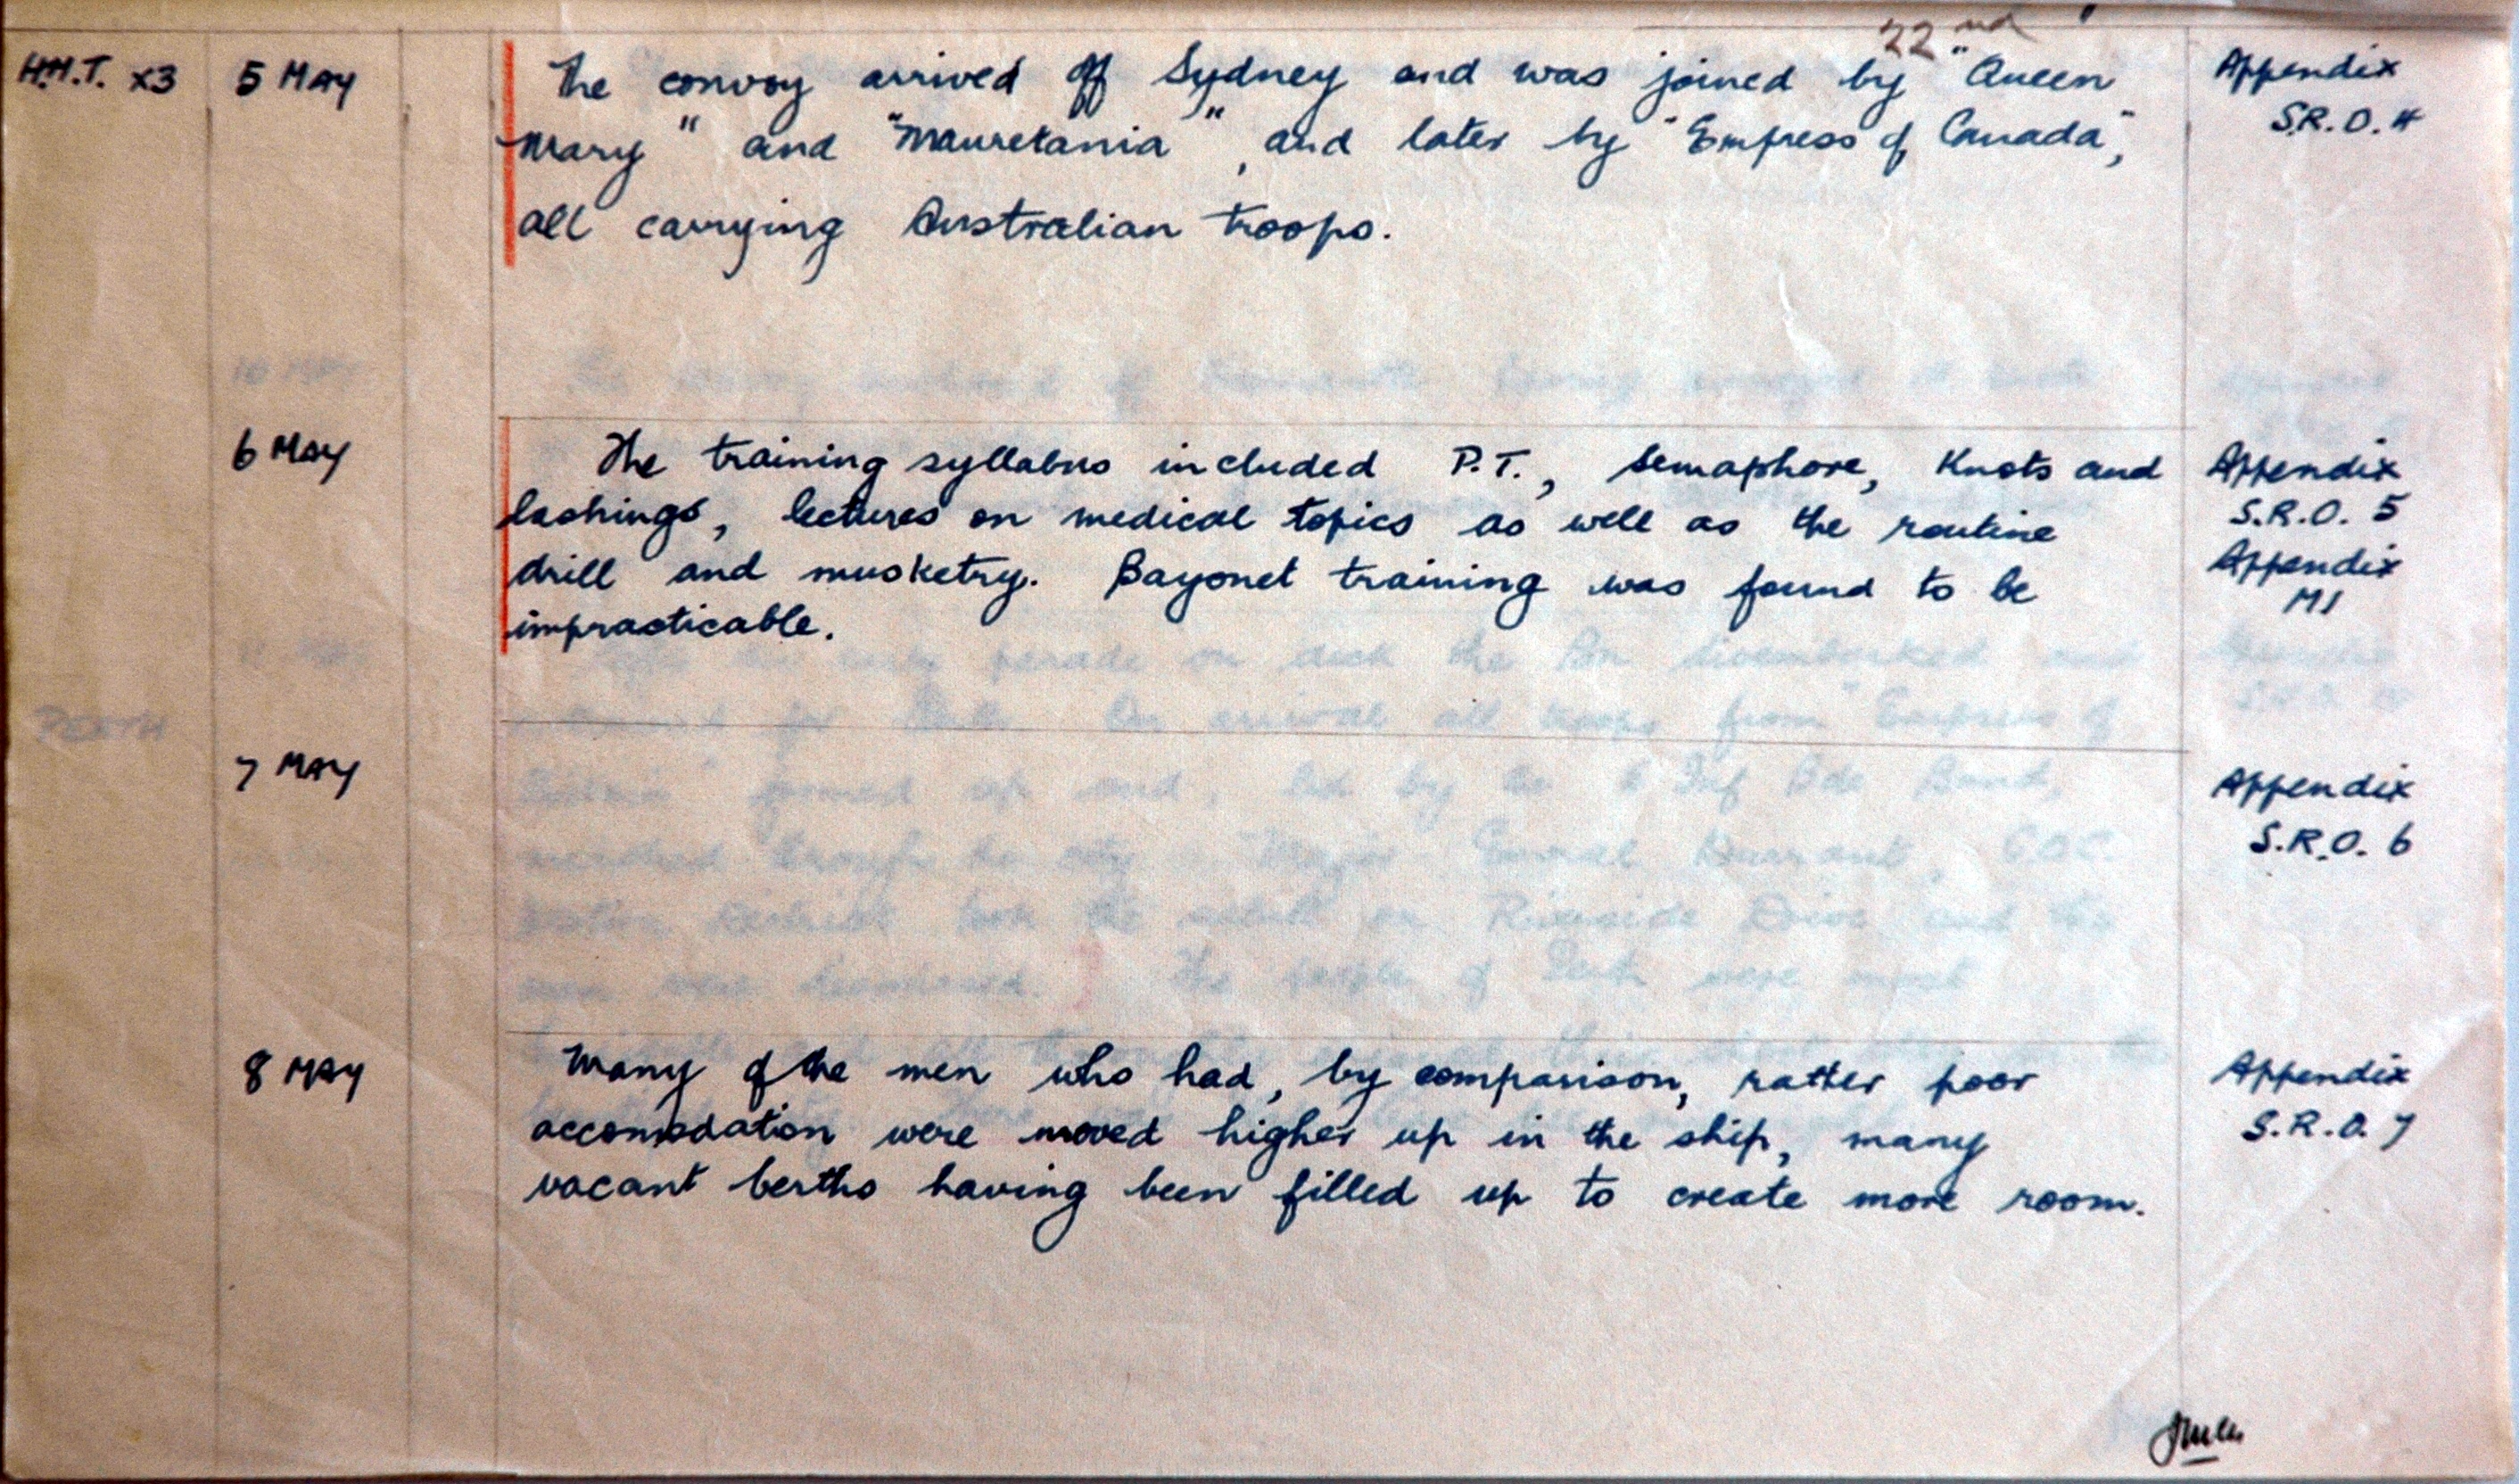 22nd
H.M.T. X3 5 MAY The convoy arrived off Sydney and was joined by "Queen Appendix
Mary" and "Mauretania", and later by "Empress of Canada", S.R.O. 4
all carrying Australian troops.
6 MAY The training syllabus included P.T., Semaphore, Knots and Appendix
lashings, lectures on medical topics as well as the routine S.R.O. 5
drill and musketry. Bayonet training was found to be Appendix
impracticable. M1
7 MAY Appendix
S.R.O. 6
8 MAY Many of the men who had, by comparison, rather poor Appendix
accomodation were moved higher up in the ship, many S.R.O. 7
vacant berths having been filled up to create more room.